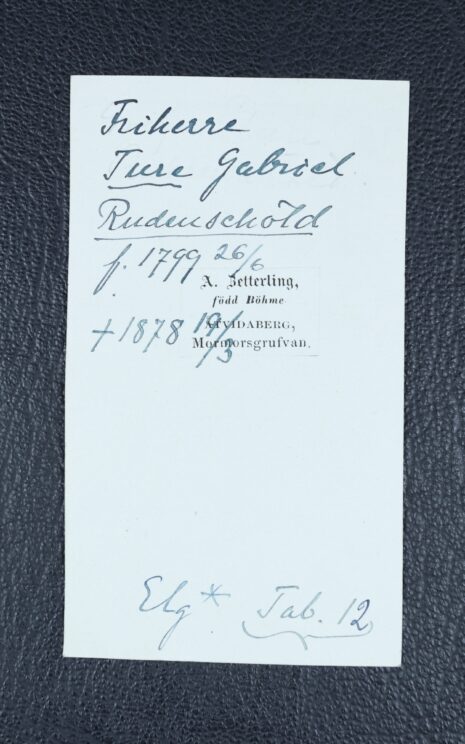 Friherre
Ture Gabriel
Rudenschöld
f. 1799 26/6
A. Zetterling,
född Böhme
ÅTVIDABERG,
† 1878 19/3
Mormorsgrufvan.
Elg * Tab. 12